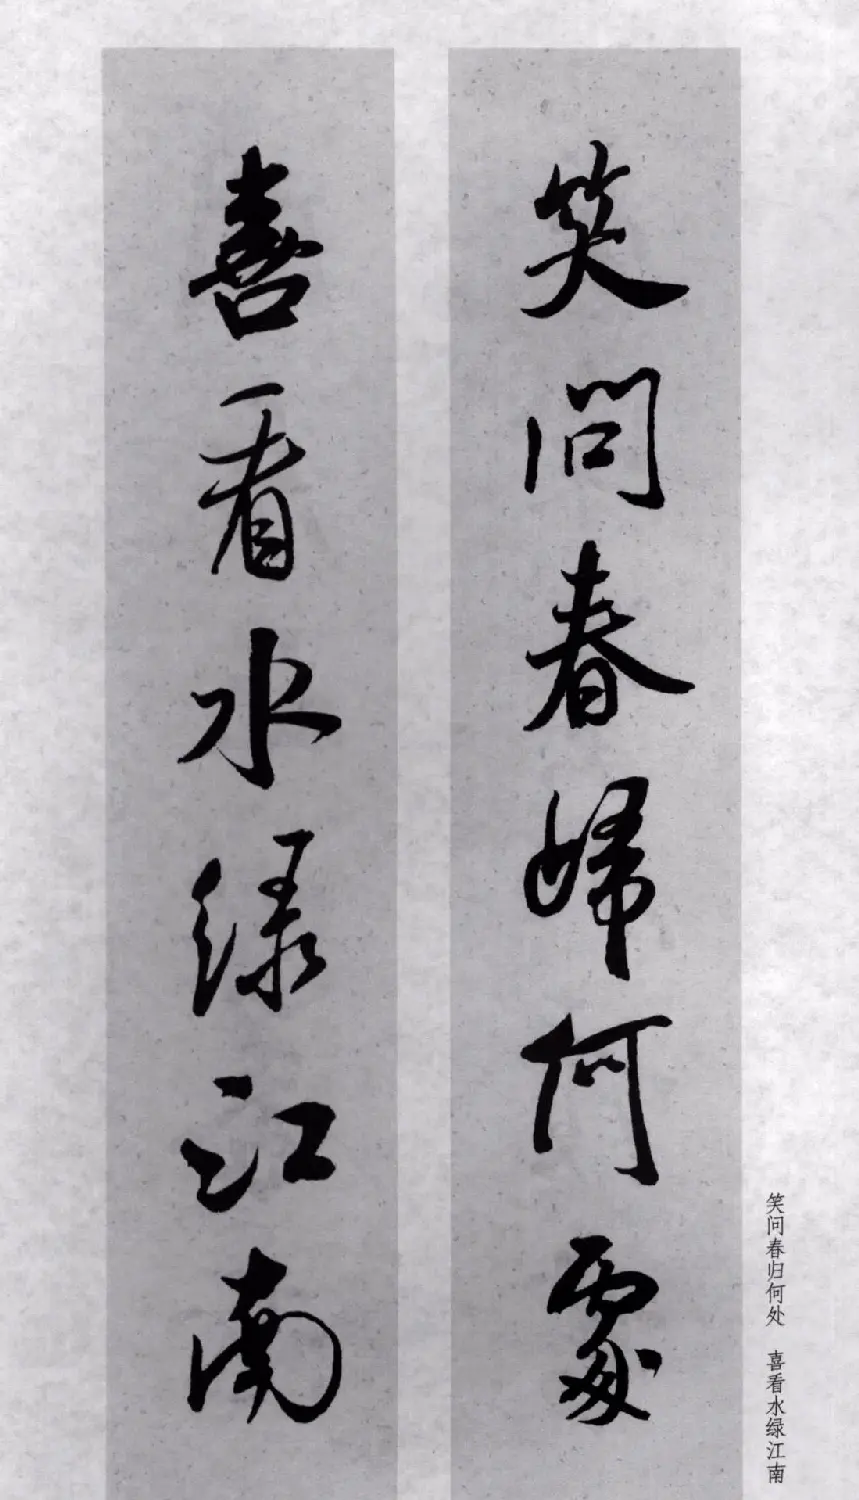 笑問春歸何處
喜看水绿江南
笑问春归何处 喜看水绿江南